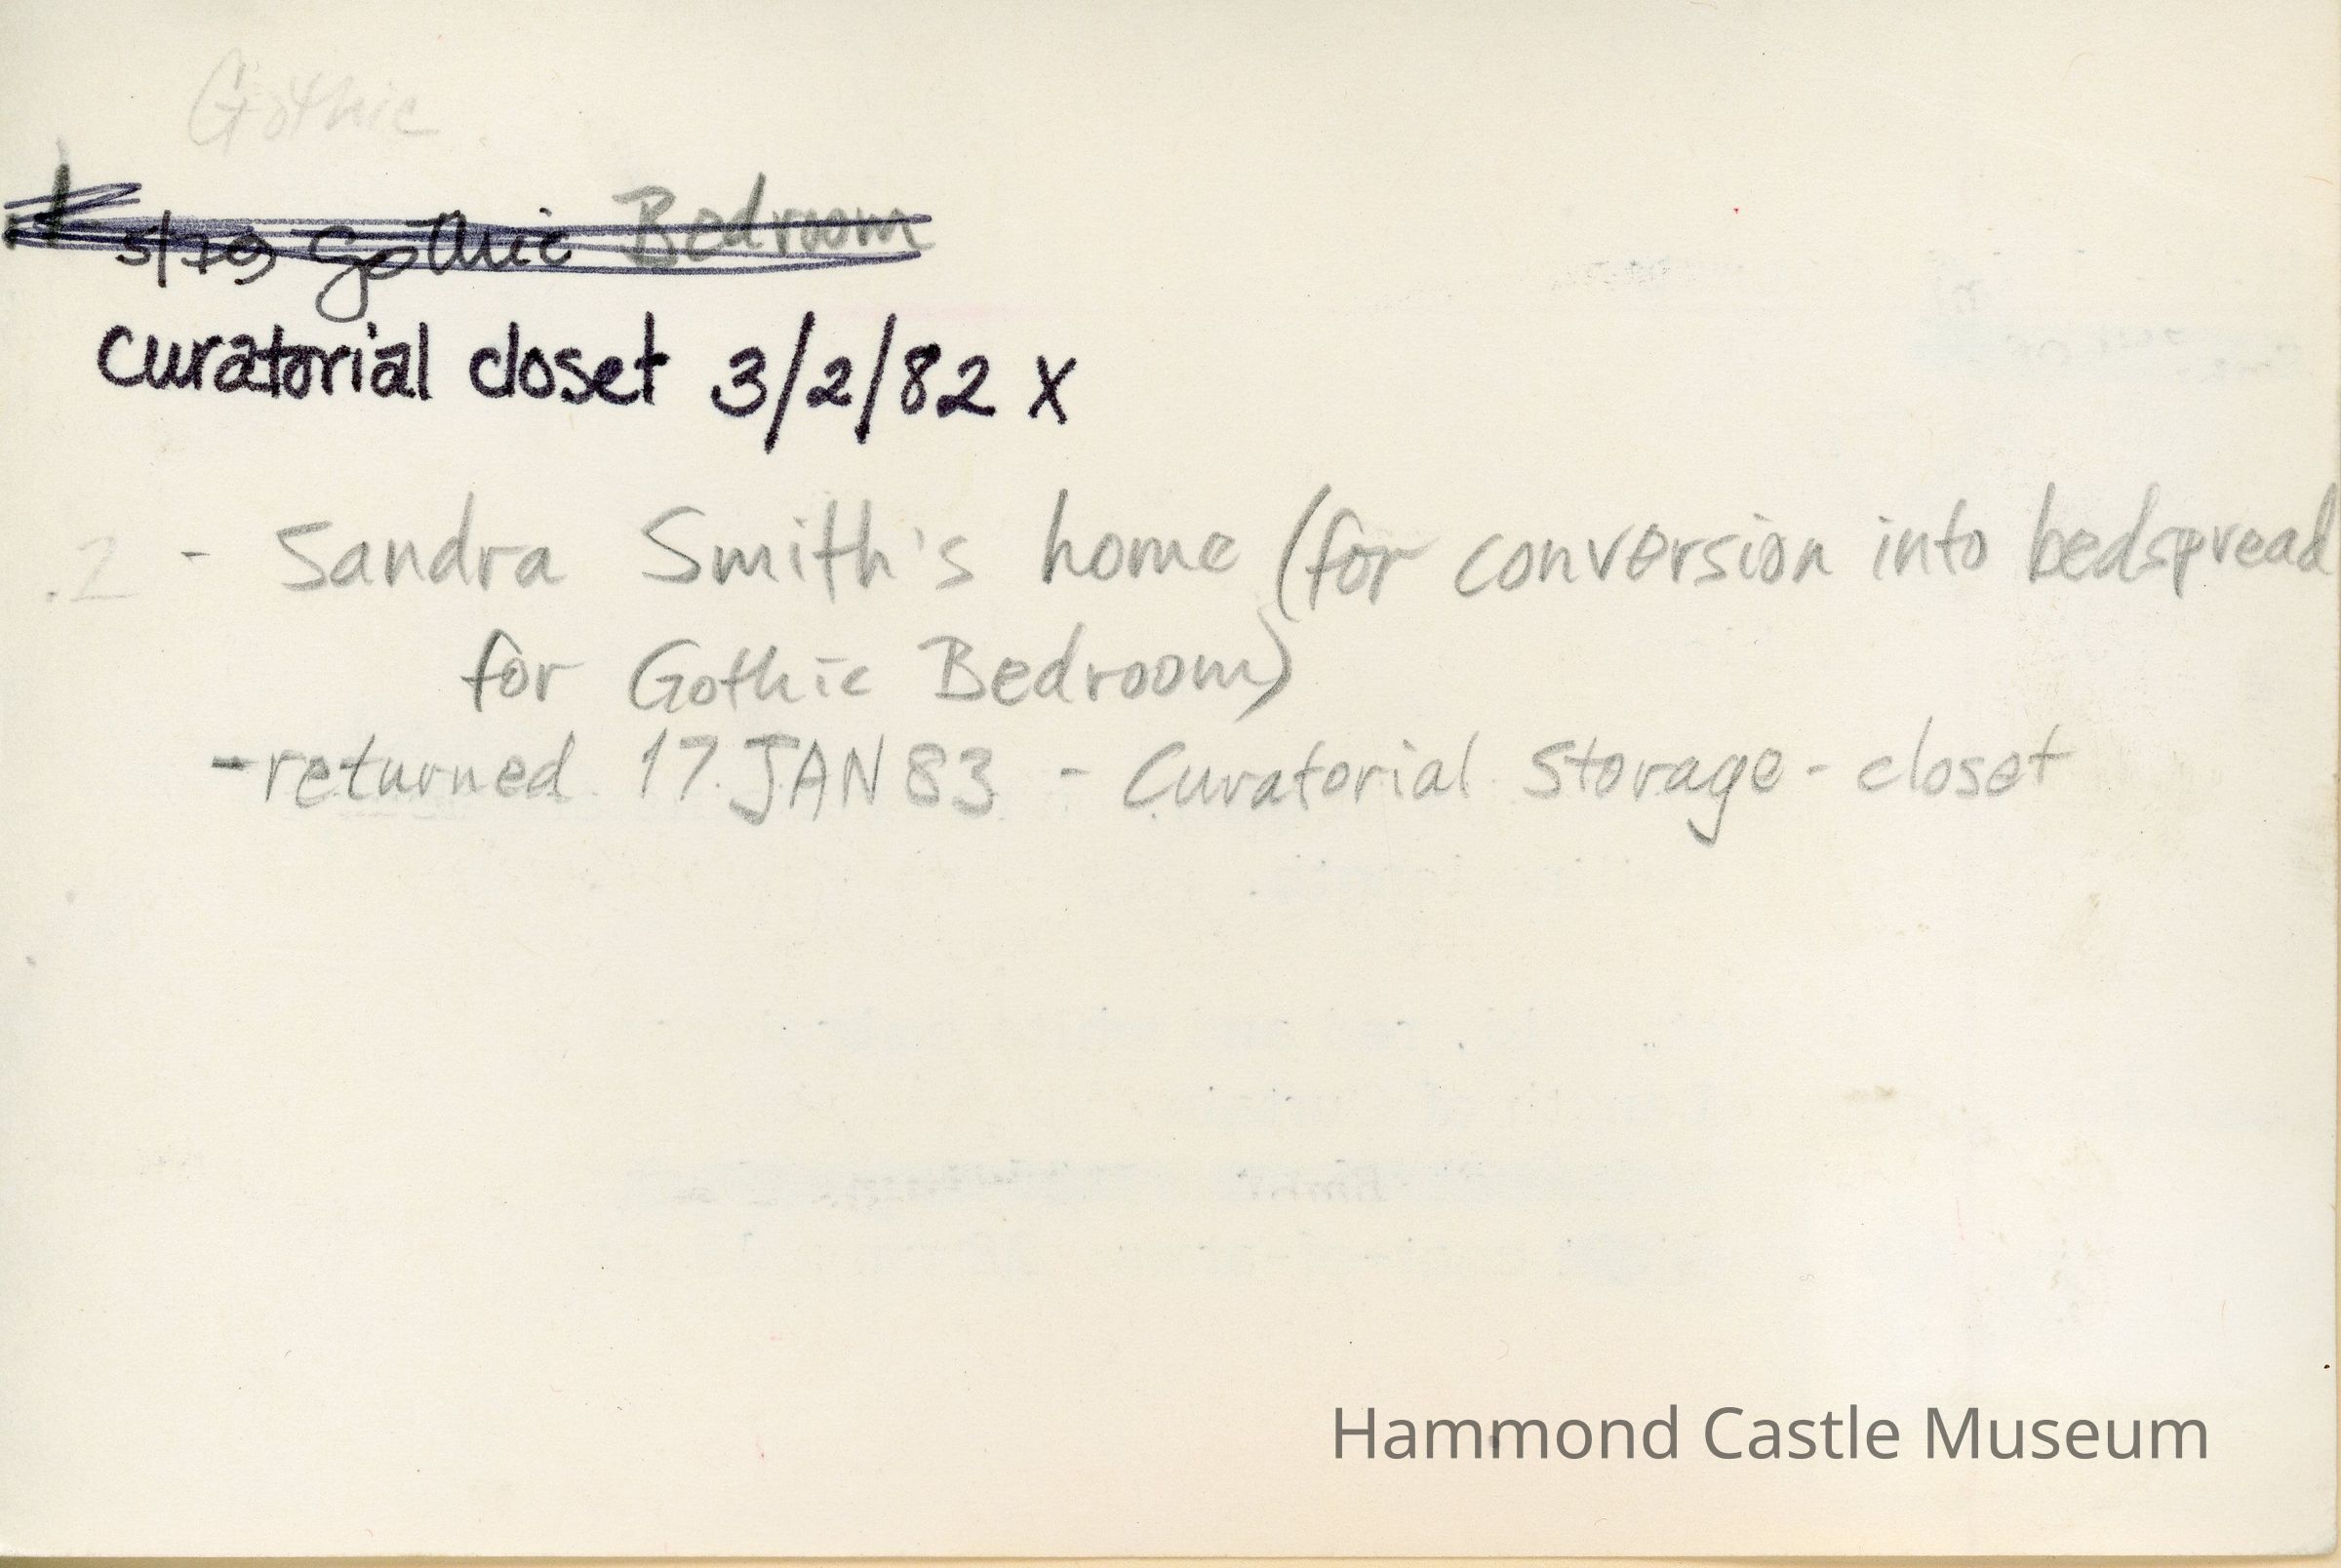 Gothic
5/79 Gothic Bedroom
curatorial closet 3/2/82 X
.2 - Sandra Smith's home (for conversion into bedspread
for Gothic Bedroom)
-returned 17 JAN 83 - Curatorial Storage - closet
Hammond Castle Museum